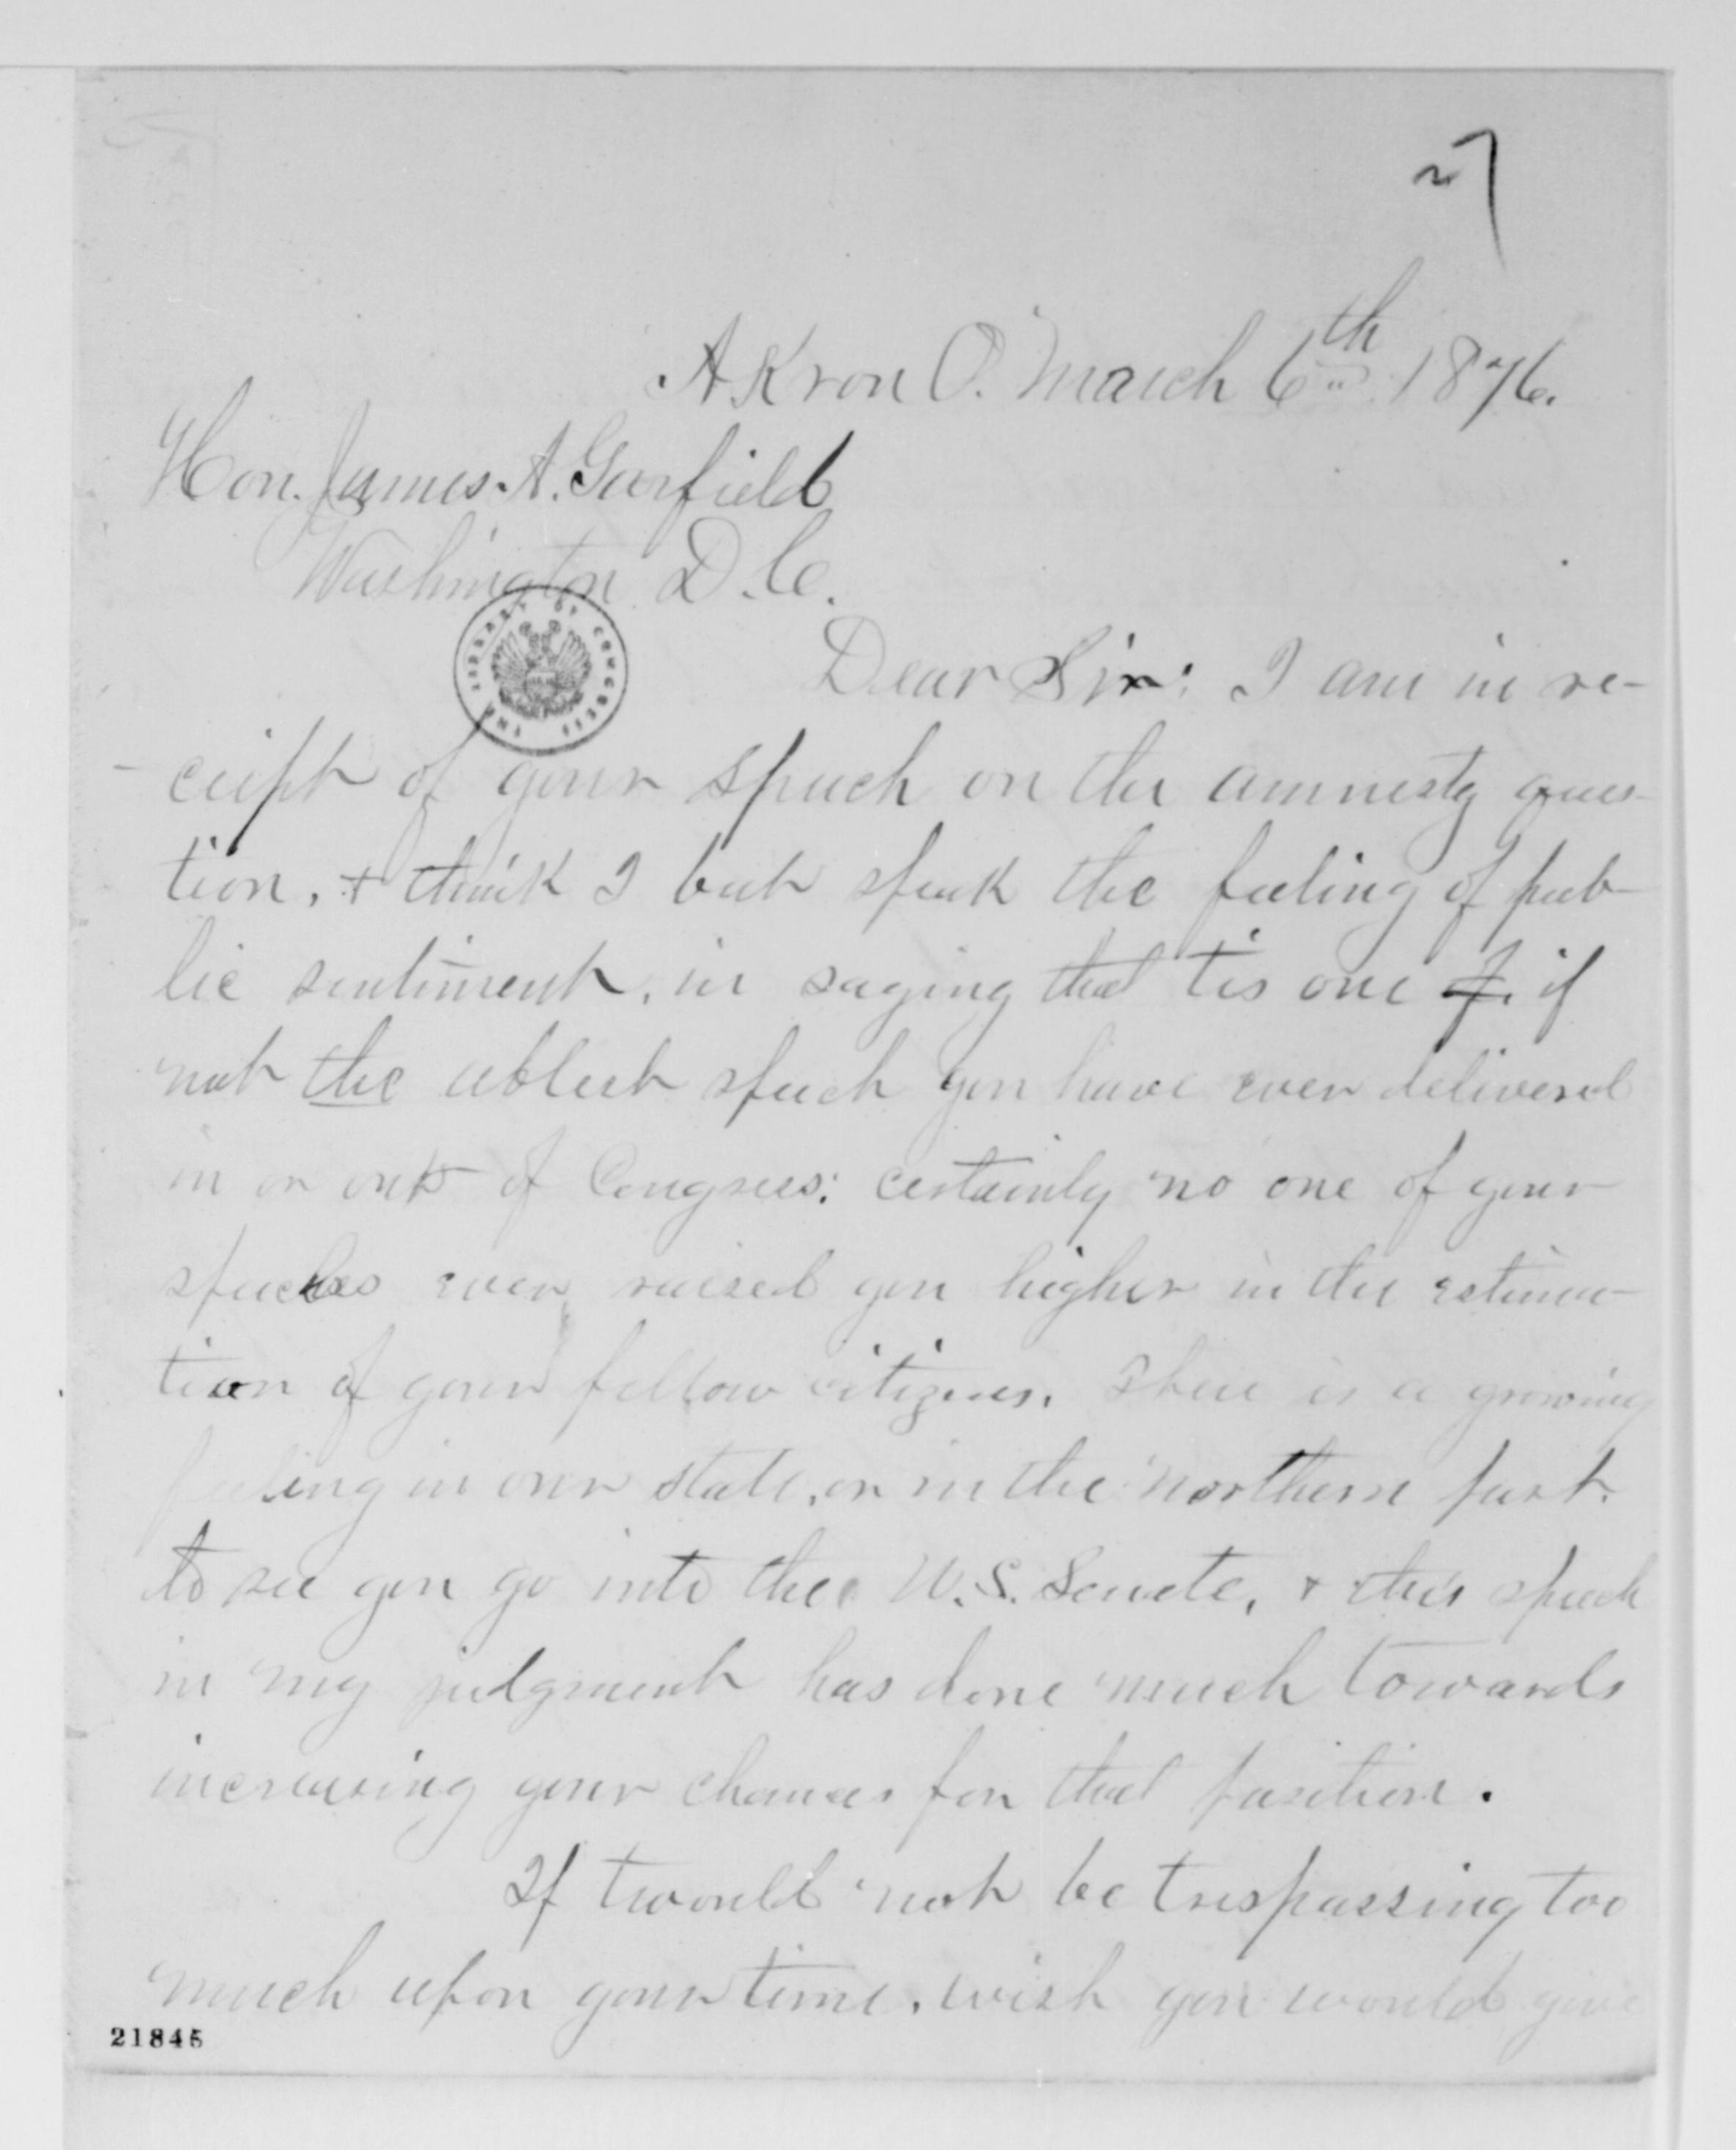 27
Akron O. March 6th 1876.
Hon. James A. Garfield
Washington D.C.
THE LIBRARY OF CONGRESS
Dear Sir: I am in re-
-ceipt of your speech on the amnesty ques-
tion, + think I but speak the feeling of pub-
lic sentiment, in saying that tis one of, if
not the ablest speech you have ever delivered
in or out of Congress: certainly no one of your
speeches ever raised you higher in the estima-
tion of your fellow citizens. There is a growing
feeling in our state, or in the northern part,
to see you go into the U.S. Senate, + this speech
in my judgment has done much towards
increasing your chances for that position.
If twould not be trespassing too
much upon your time, wish you would give
21845